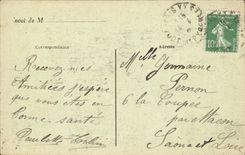 Envoi de M
Correspondance
Adresse
Recevez mes
Amitiés j'espère
que vous êtes en
bonne santé
Paulette
Mlle Germaine
Pernon
6 la Coupée
par Macon
Saône et Loire
10